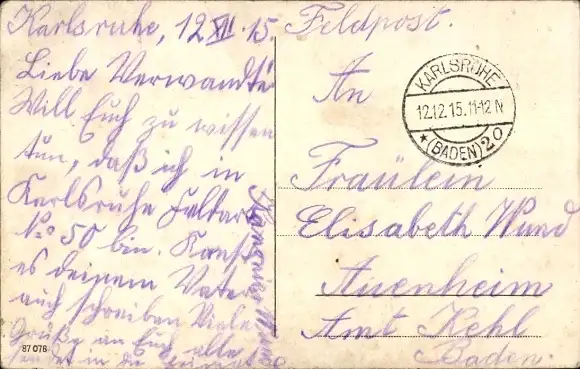 Karlsruhe, 12 XII. 15.
Liebe Verwandte
Will Euch zu wissen
tun, daß ich in
Karlsruhe
No 50 bin. Kanst
es deinem Vater
auch schreiben Viele
Grüße an Euch alle
sendet in die
87076
Feldpost.
An
Fräulein
Elisabeth Wund
Auenheim
Amt Kehl
Baden.
KARLSRUHE
12.12.15.11-12 N
*(BADEN)20